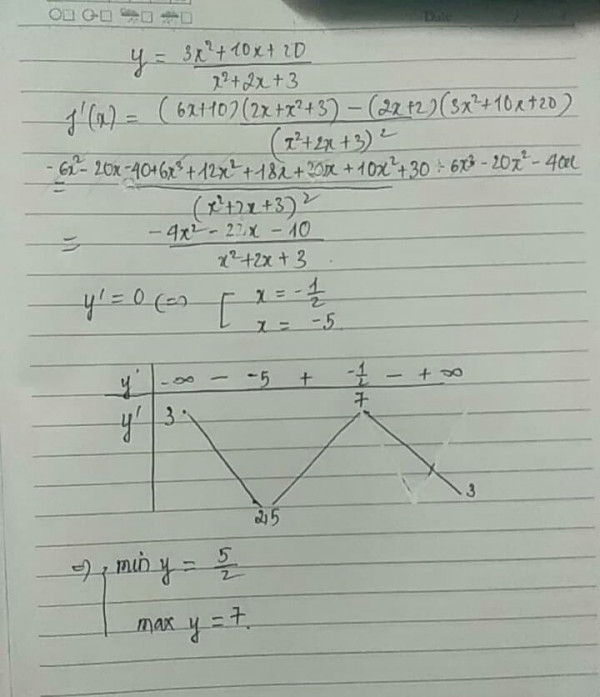 Date
y = 3x²+10x+20 / x²+2x+3
f'(x) = (6x+10)(2x+x²+3) - (2x+2)(3x²+10x+20) / (x²+2x+3)²
= -6x²-20x-40+6x³+12x²+18x+20x+10x²+30-6x³-20x²-40x / (x²+2x+3)²
= -4x²-22x-10 / x²+2x+3
y' = 0 (=) [ x = -1/2
x = -5
y' | -∞ - -5 + -1/2 - +∞
y' | 3 7
3
2,5
=) min y = 5/2
max y = 7.